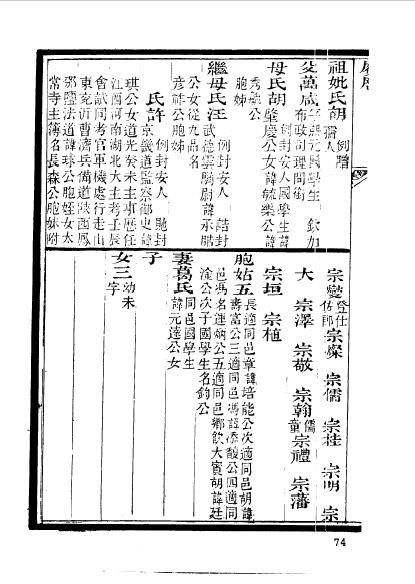 祖妣氏胡 例贈孺人
父萬成 字熙元國學生 欽加布政司理問銜
母氏胡 例封安人國學生諱肇慶公女諱毓樂公諱
秀毓公胞姊
繼母氏汪 例封安人 誥封武德雲騎尉諱承勝
公女從九品名彦祥公胞姊
氏許 例封安人 貤封京畿道監察御史諱
琪公女道光癸未主事歷任
江西河南湖北大主考壬辰
會試同考官軍機處行走山
東兗沂曹濟兵備道陝西鳳
邠鹽法道諱球公胞姪女太
常寺主簿名長森公胞妹附
宗燮 登仕佐郎 宗燦 宗儒 宗桂 宗明 宗
大 宗澤 宗敬 宗翰 儒童 宗禮 宗藩
宗垣 宗植
胞姑五 長適同邑章諱培能公次適同邑胡諱
壽富公三適同邑馮諱添公四適同
邑馮名運炳公五適同邑鄉飲大賓胡諱廷
淦公次子國學生名鈞公
妻葛氏 同邑國學生諱元達公女
子
女三 幼未字
74